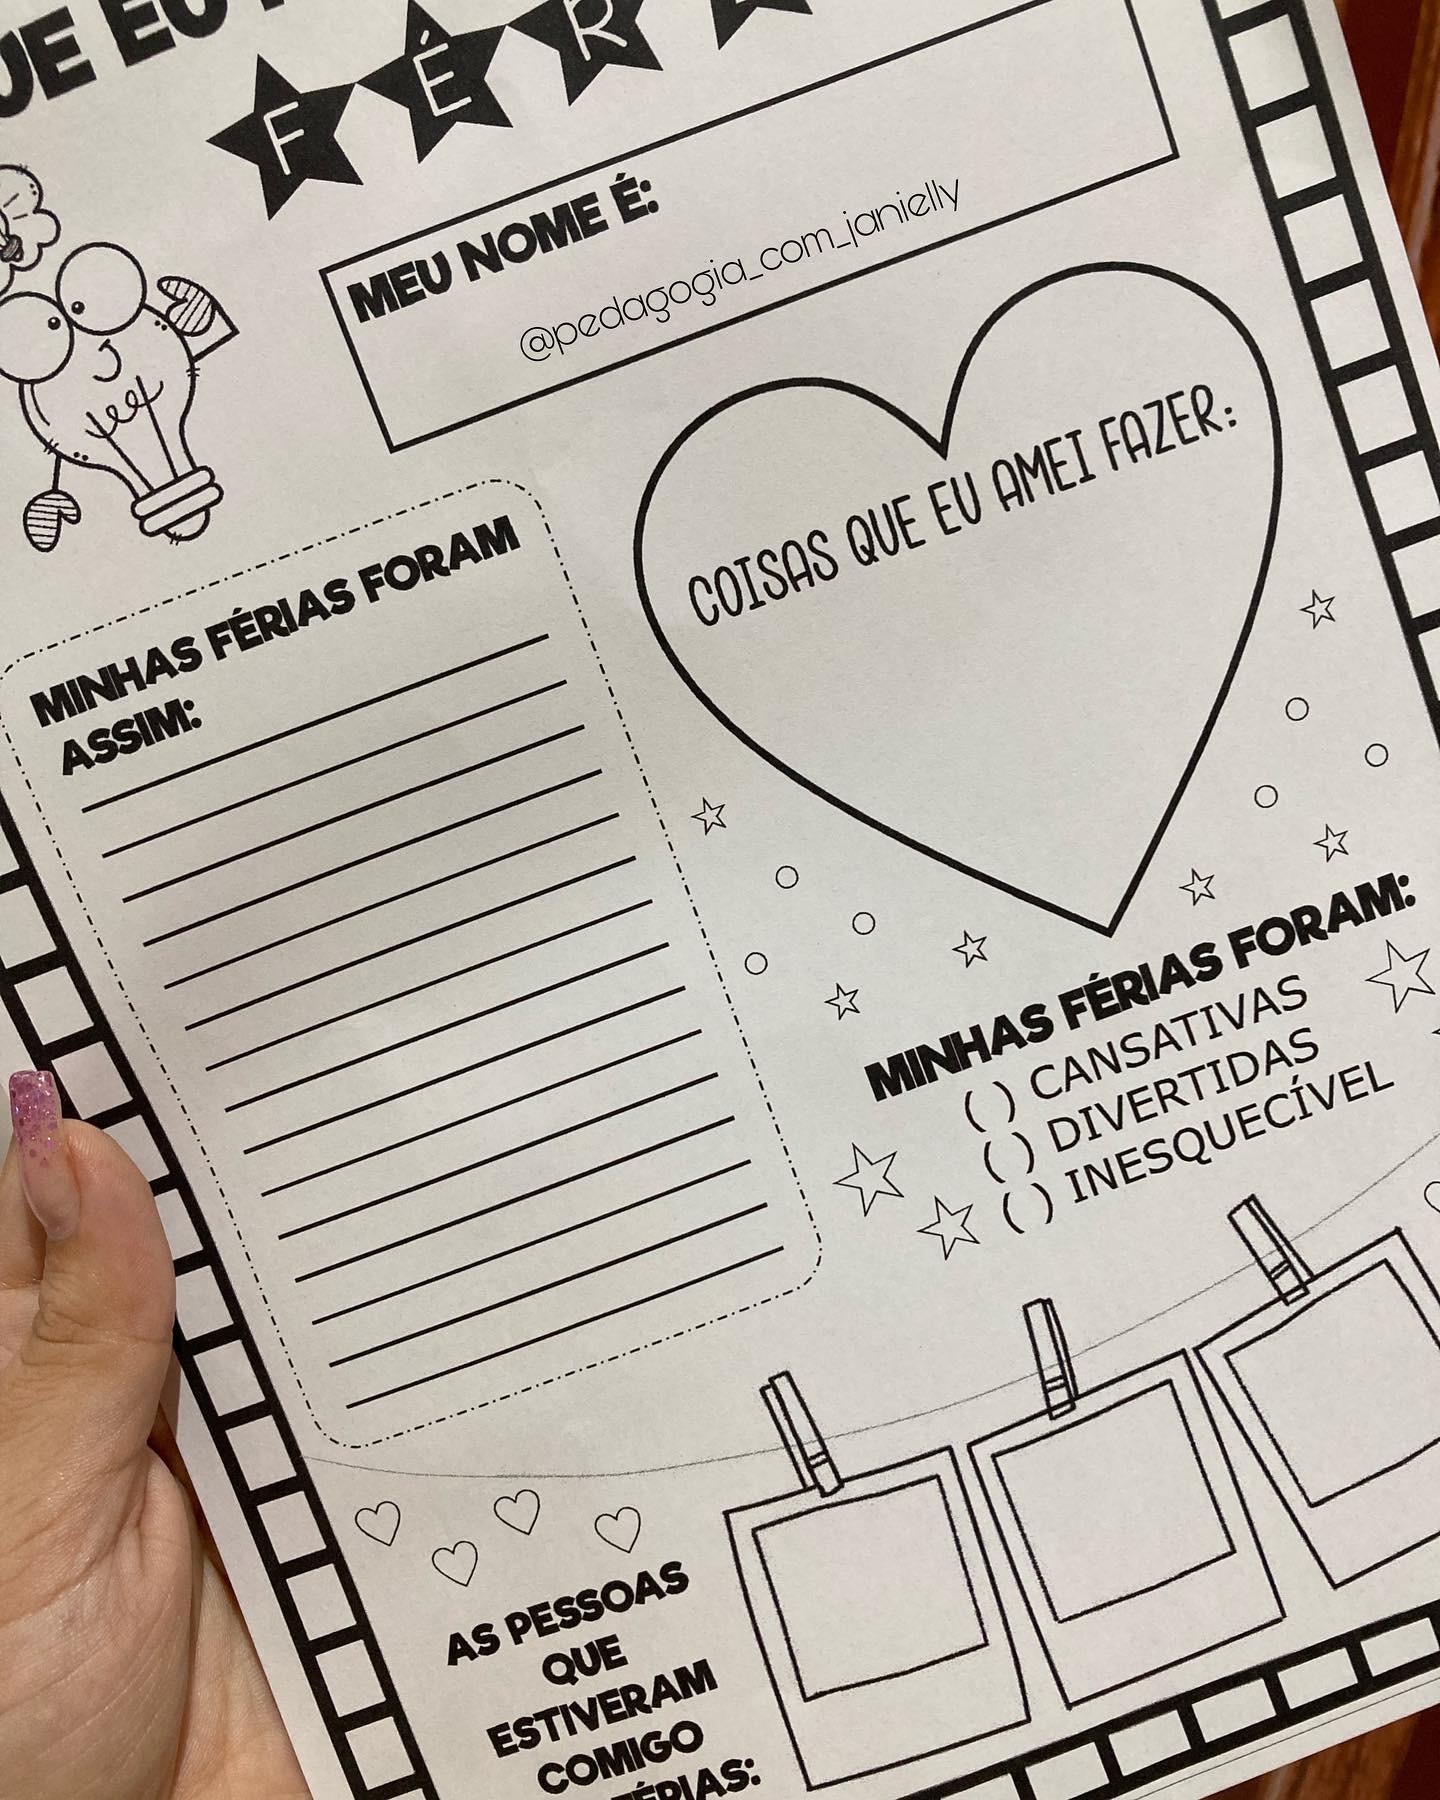 UE EU
FÉR
MEU NOME É:
@pedagogia_com_janielly
COISAS QUE EU AMEI FAZER:
MINHAS FÉRIAS FORAM
ASSIM:
MINHAS FÉRIAS FORAM:
( ) CANSATIVAS
( ) DIVERTIDAS
( ) INESQUECÍVEL
AS PESSOAS
QUE
ESTIVERAM
COMIGO
FÉRIAS: